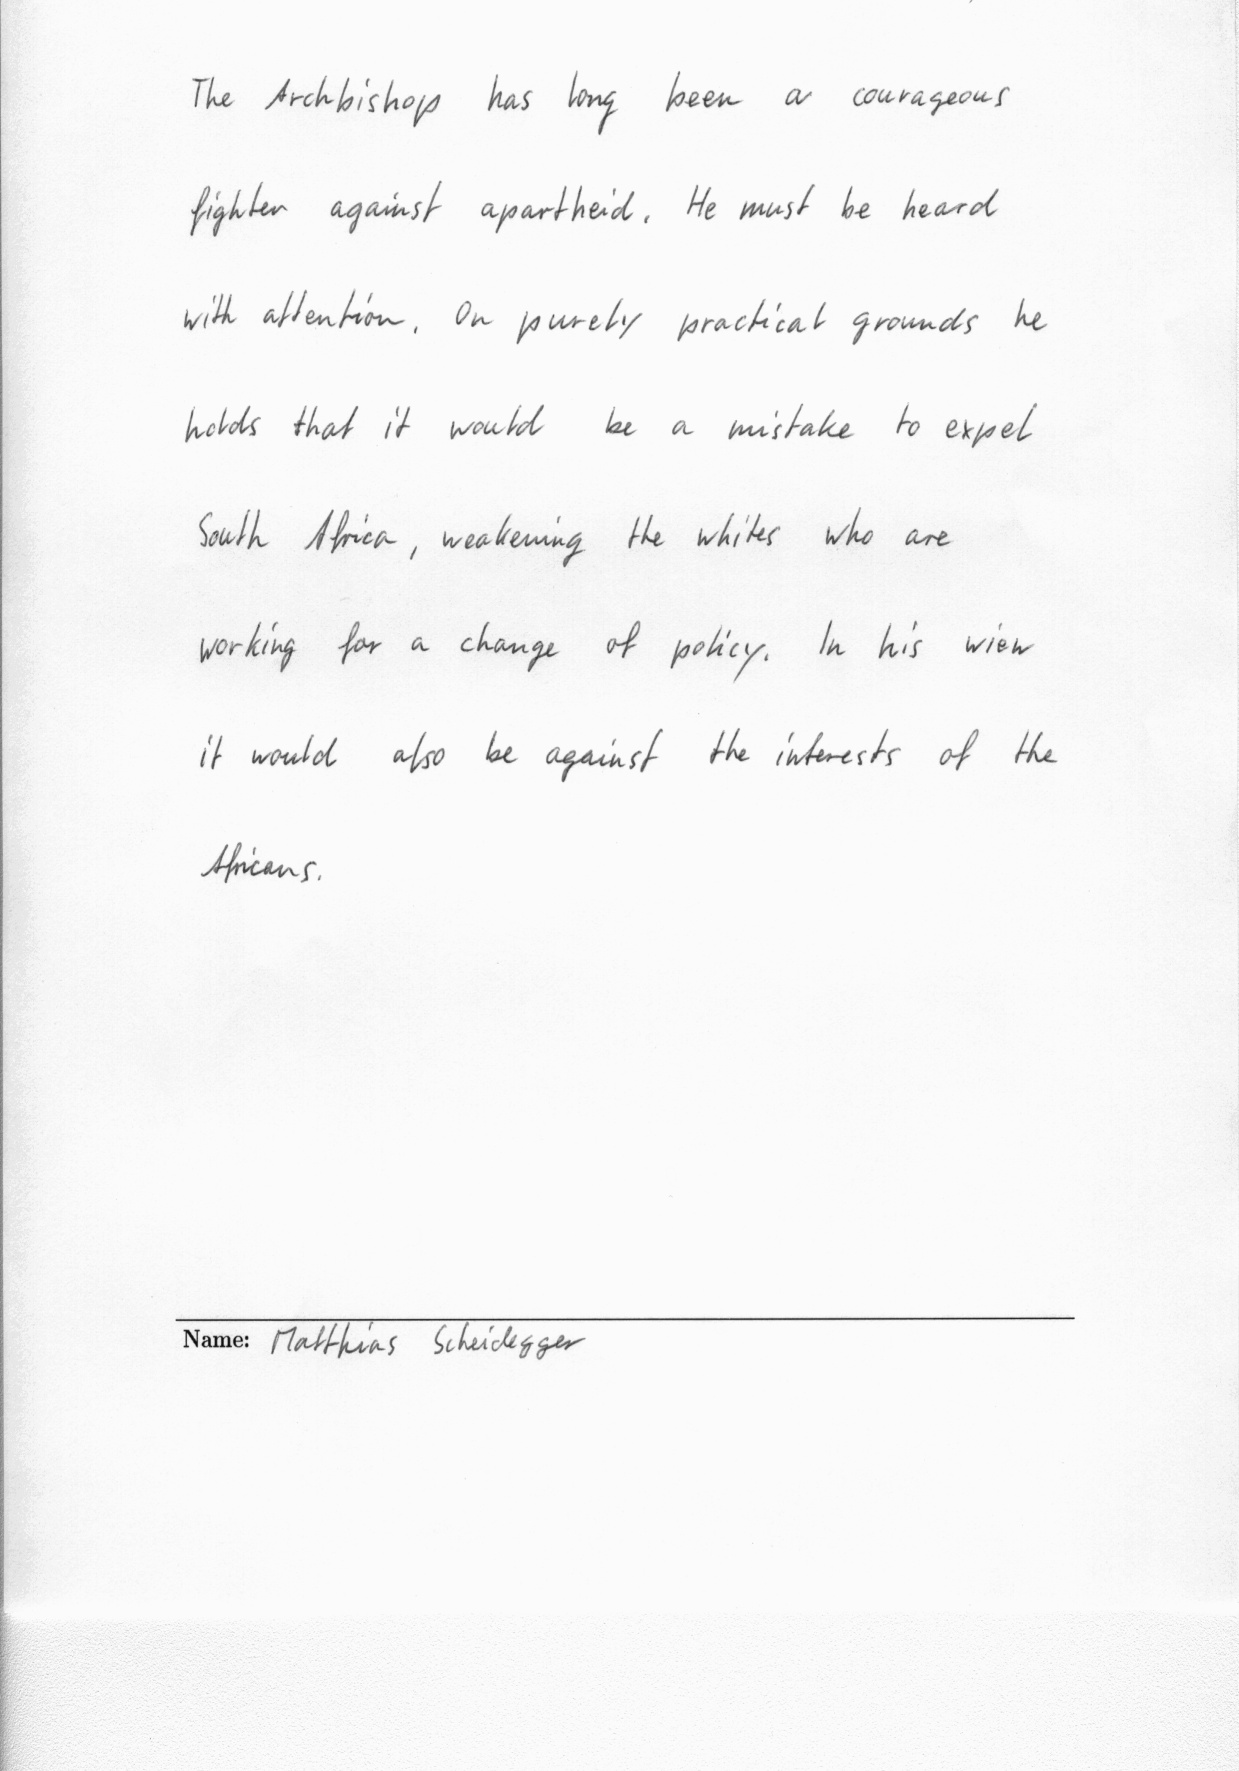 The Archbishop has long been a courageous
fighter against apartheid. He must be heard
with attention. On purely practical grounds he
holds that it would be a mistake to expel
South Africa, weakening the whites who are
working for a change of policy. In his wiew
it would also be against the interests of the
Africans.
Name: Matthias Scheidegger